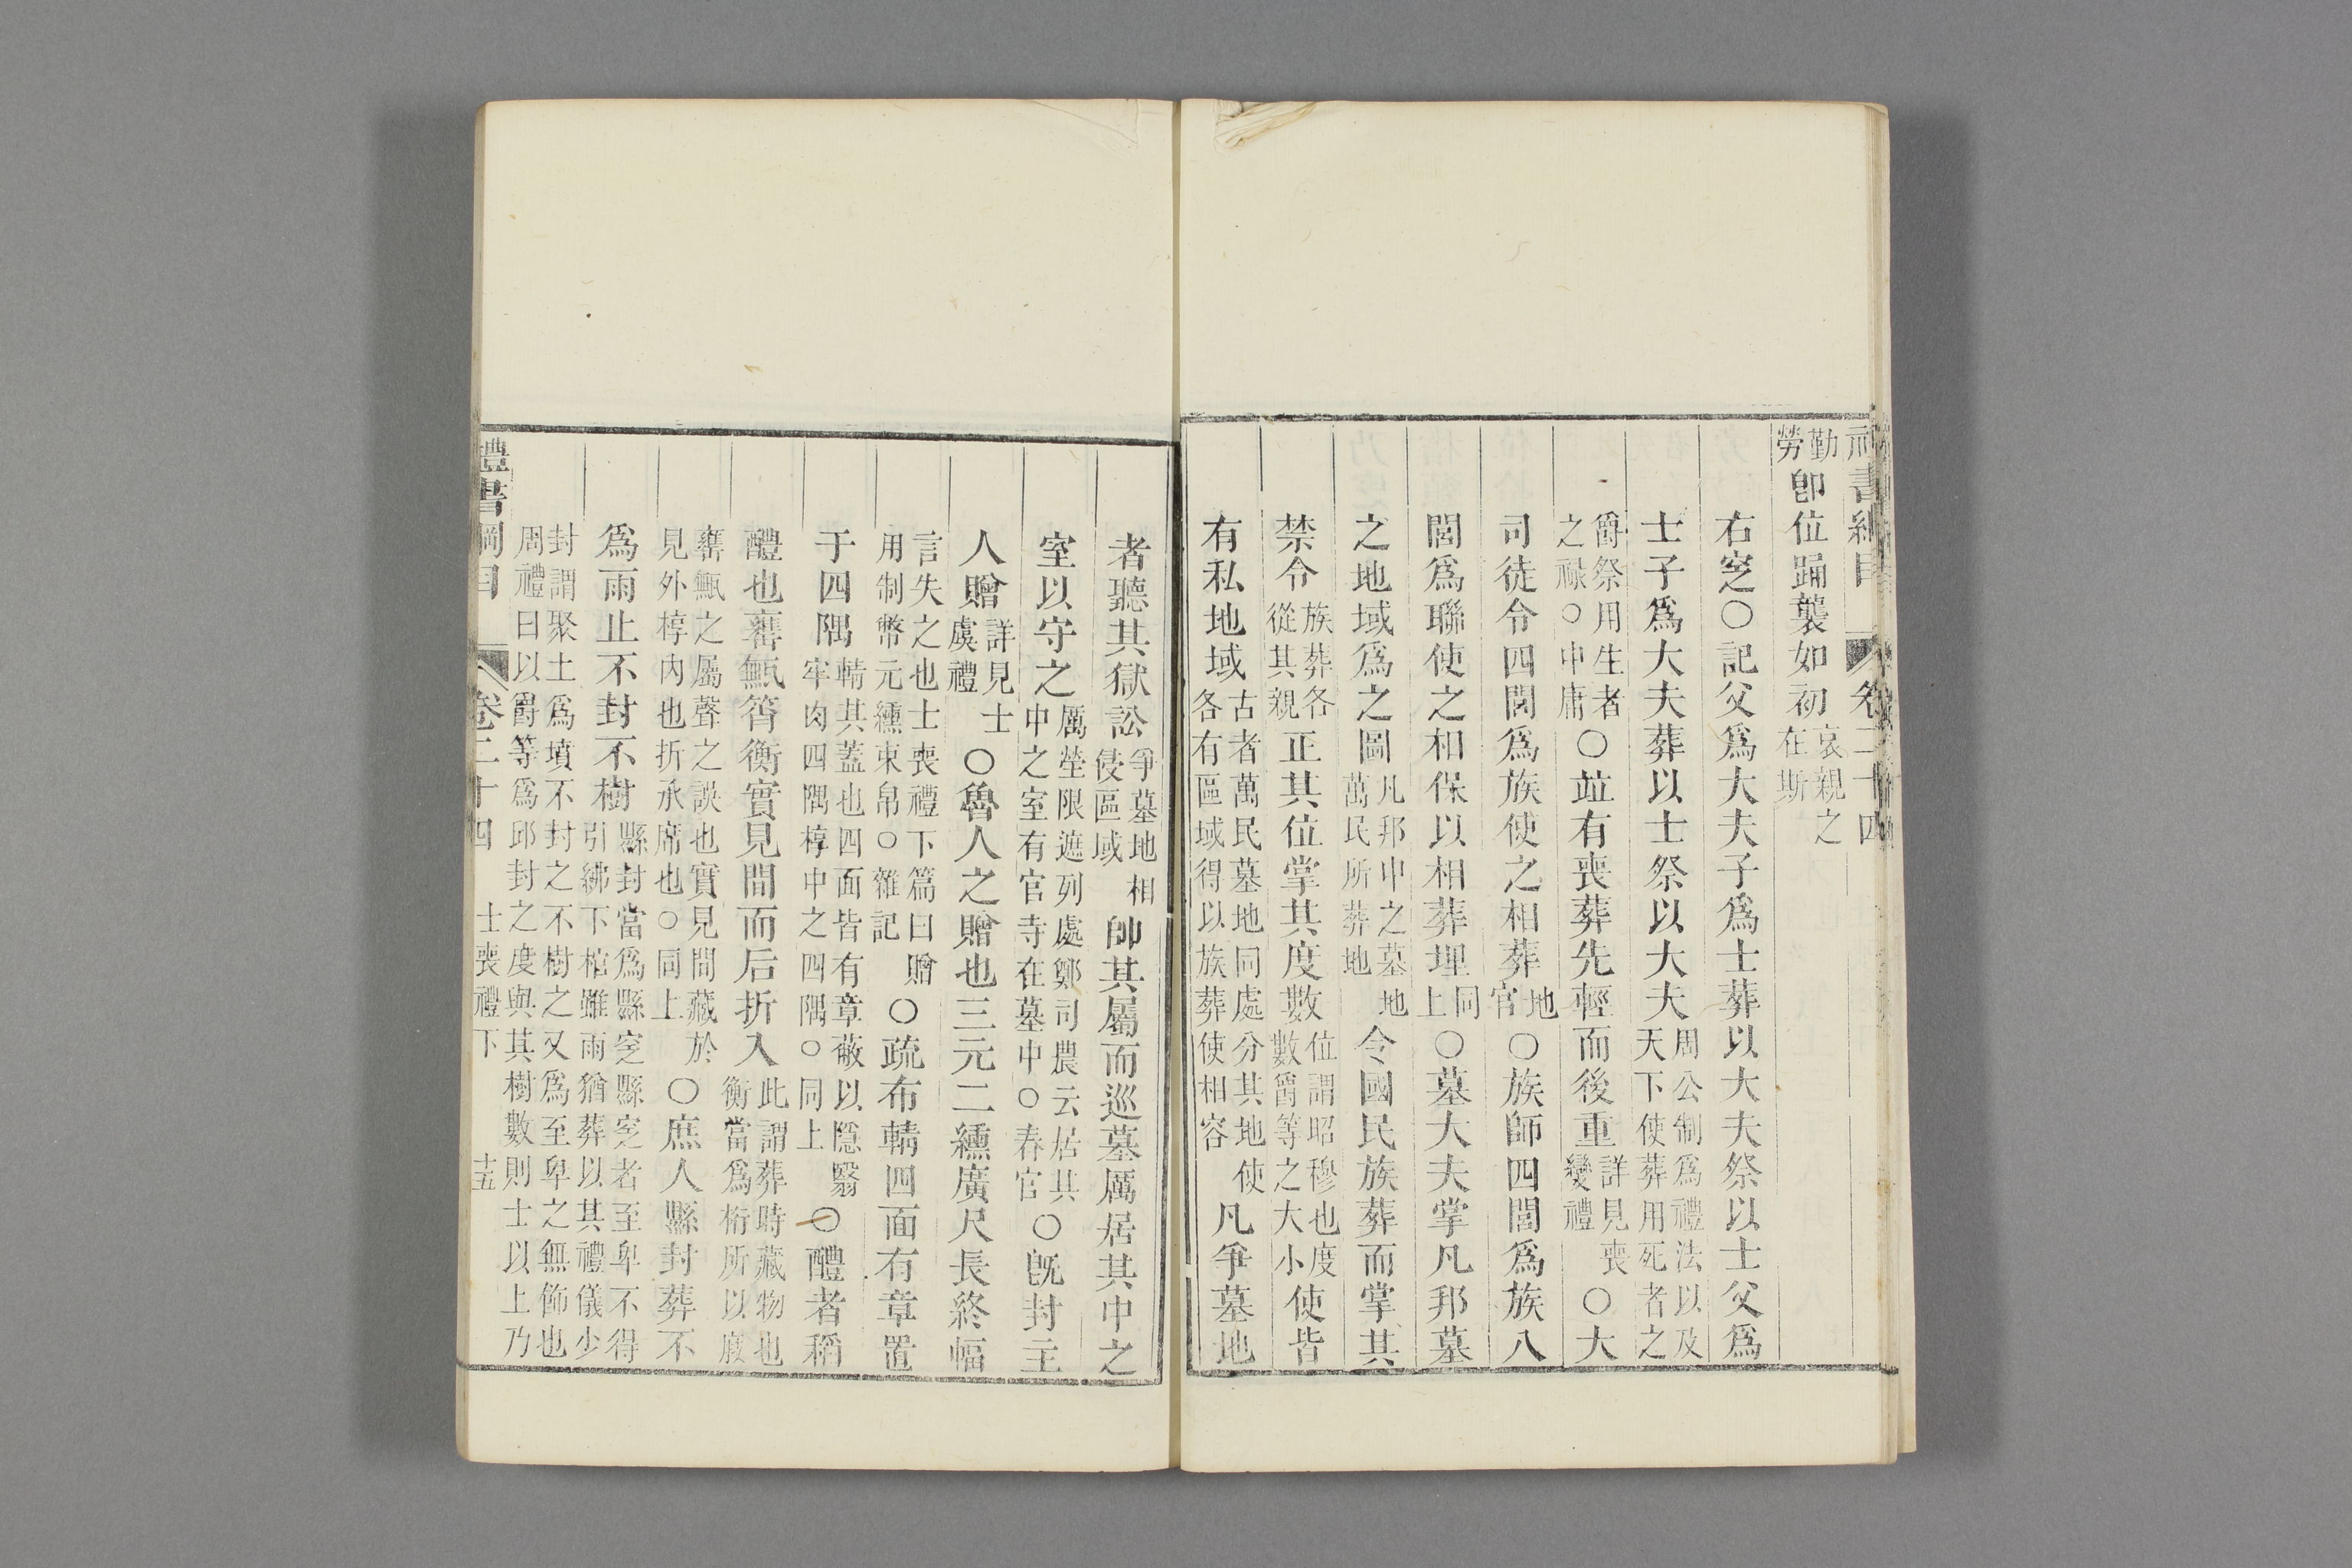 書綱目 卷二十四
勤勞卽位踊襲如初哀親之在斯
右窆之○記父爲大夫子爲士葬以大夫祭以士父爲
士子爲大夫葬以士祭以大夫周公制爲禮法以及天下使葬用死者之
爵祭用生者之祿○中庸○竝有喪葬先輕而後重詳見喪變禮○大
司徒令四閭爲族使之相葬地官○族師四閭爲族八
閭爲聯使之相保以相葬埋同上○墓大夫掌凡邦墓
之地域爲之圖凡邦中之墓地萬民所葬地令國民族葬而掌其
禁令族葬各從其親正其位掌其度數位謂昭穆也度數爵等之大小使皆
有私地域古者萬民墓地同處分其地使各有區域得以族葬使相容凡爭墓地
者聽其獄訟爭墓地相侵區域帥其屬而巡墓厲居其中之
室以守之厲塋限遮列處鄭司農云居其中之室有官寺在墓中○春官○旣封主
人贈詳見士虞禮○魯人之贈也三元二纁廣尺長終幅
言失之也士喪禮下篇曰贈用制幣元纁束帛○雜記○疏布輤四面有章置
于四隅輤其蓋也四面皆有章蔽以隱翳牢肉四隅椁中之四隅○同上○醴者稻
醴也甕甒筲衡實見間而后折入此謂葬時藏物也衡當爲桁所以庪
甕甒之屬聲之誤也實見間藏於見外椁內也折承席也○同上○庶人縣封葬不
爲雨止不封不樹縣封當爲縣窆縣窆者至卑不得引紼下棺雖雨猶葬以其禮儀少
封謂聚土爲墳不封之不樹之又爲至卑之無飾也周禮曰以爵等爲邱封之度與其樹數則士以上乃
禮書綱目 卷二十四 士喪禮下 十五